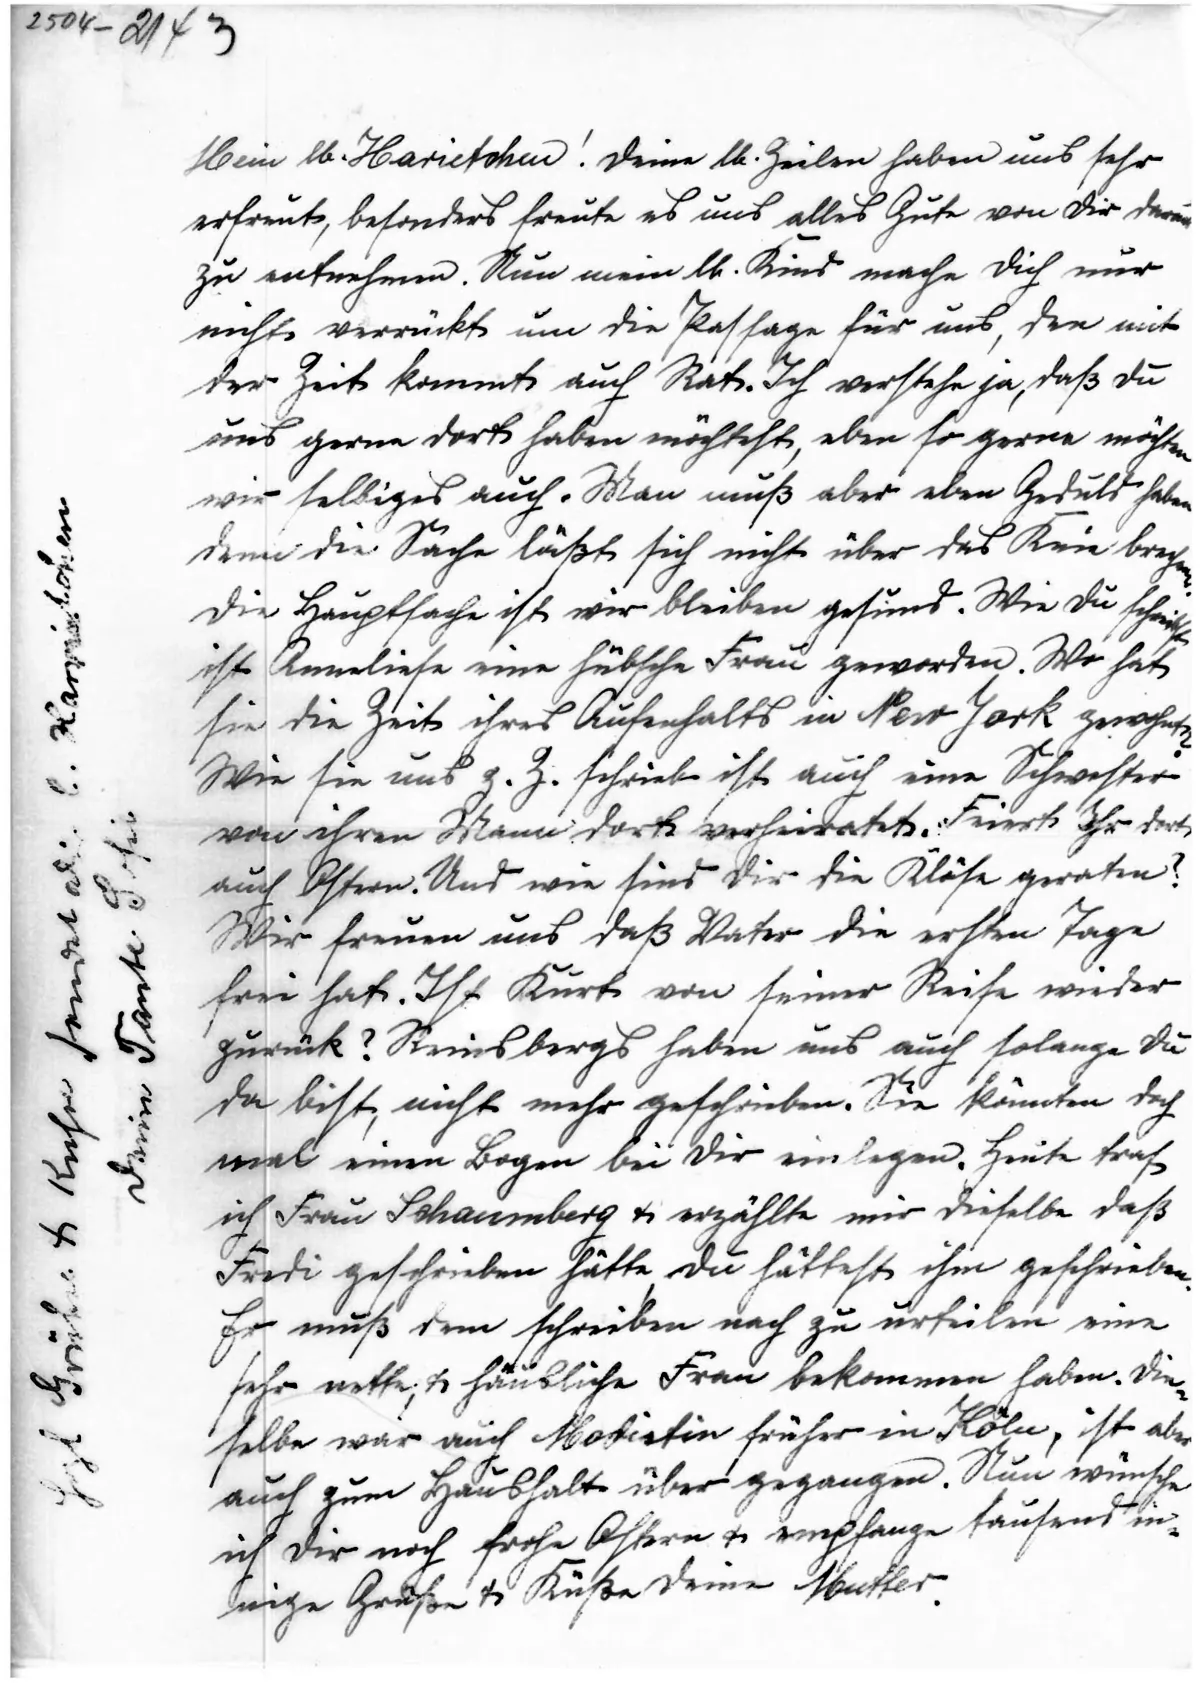 2504-21 + 3
Mein lb. Harietchen! Deine lb. Zeilen haben uns sehr
erfreut, besonders freute es uns alles Gute von Dir daraus
zu entnehmen. Nun mein lb. Kind mache Dich nur
nicht verrückt um die Passage für uns, den mit
der Zeit kommt auch Rat. Ich verstehe ja, daß Du
uns gerne dort haben möchtest, eben so gerne möchten
wir selbiges auch. Man muß aber eben Geduld haben
denn die Sache läßt sich nicht über das Knie brechen.
Die Hauptsache ist wir bleiben gesund. Wie Du schreibst
ist Anneliese eine hübsche Frau geworden. Wo hat
sie die Zeit ihres Aufenhalts in New York gewohnt?
Wie sie uns z. Z. schrieb ist auch eine Schwester
von ihren Mann dort verheiratet. Feiert Ihr dort
auch Ostern. Und wie sind Dir die Klöse geraten?
Wir freuen uns daß Vater die ersten Tage
frei hat. Ist Kurt von seiner Reise wieder
zurück? Reinsbergs haben uns auch solange Du
da bist, nicht mehr geschrieben. Sie könnten doch
mal einen Bogen bei Dir einlegen. Heute traf
ich Frau Schaumberg & erzählte mir dieselbe daß
Fredi geschrieben hätte, Du hättest ihm geschrieben.
Er muß dem schreiben nach zu urteilen eine
sehr nette, & häusliche Frau bekommen haben. Die-
selbe war auch Modistin früher in Köln, ist aber
auch zum Haushalt über gegangen. Nun wünsche
ich Dir noch frohe Ostern & empfange tausend in-
nige Grüße & Küße Deine Mutter.
Grüße & Küsse sendet d. l. Harietchen
Deine Tante